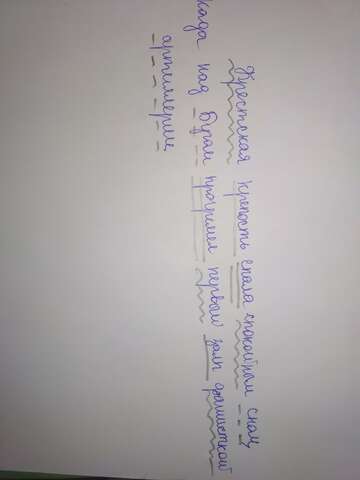 Брестская крепость спала спокойным сном,
когда над Бугом прогремел первый залп фашисткой
артиллерии